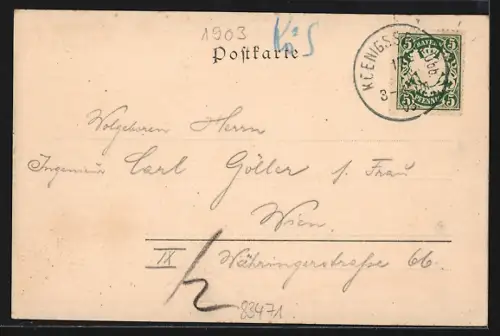 1903 K:S
Postkarte
KOENIGSS
3-
BAYERN
5 5
5 PFENNIG 5
Wolgeboren Herrn
Ingenieur Carl Göller s. Frau
Wien
IX Währingerstraße 66.
83471